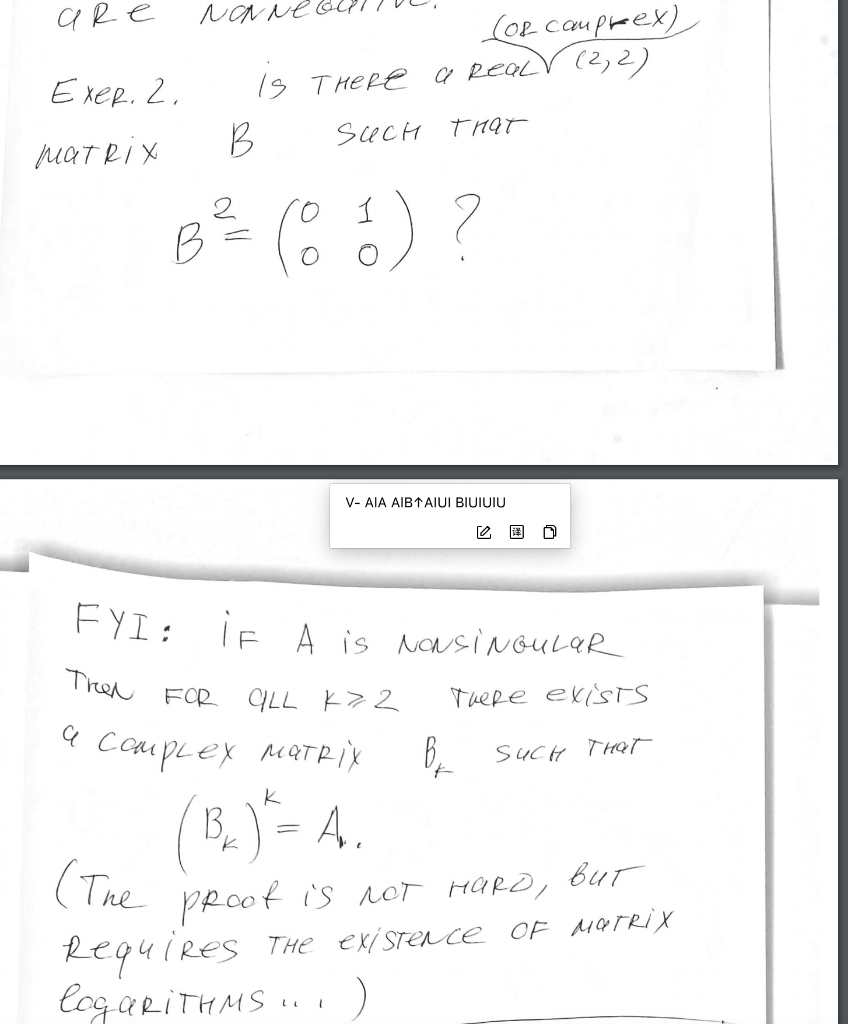 are nonnegative.
(or complex)
Exer. 2. is there a real (2,2)
matrix B such that
B² = (0 1
0 0) ?
V- AIA AIB↑AIUI BIUIUIU
FYI: if A is nonsingular
Then for all k ≥ 2 there exists
a complex matrix Bₖ such that
(Bₖ)ᵏ = A.
(The proof is not hard, but
requires the existence of matrix
logarithms ... )